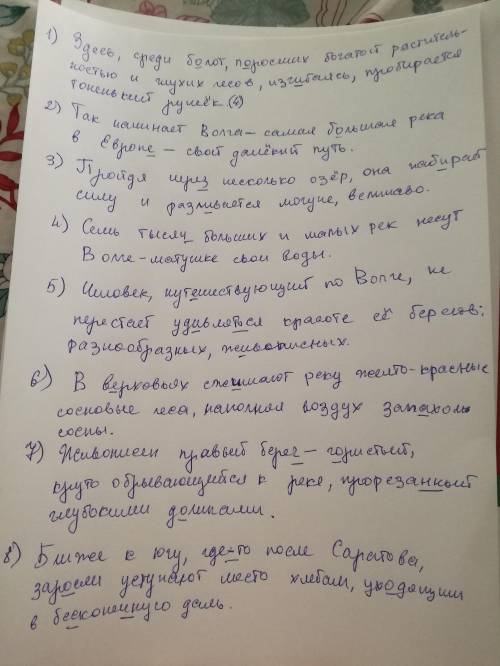 1) Здесь, среди болот, поросших богатой раститель-
ностью и глухих лесов, изгибаясь, пробирается
тоненький ручеёк. (4)
2) Так начинает Волга – самая большая река
в Европе – свой далёкий путь.
3) Пройдя через несколько озёр, она набирает
силу и разливается могуче, величаво.
4) Семь тысяч больших и малых рек несут
Волге-матушке свои воды.
5) Человек, путешествующий по Волге, не
перестаёт удивляться красоте её берегов:
разнообразных, живописных.
6) В верховьях реку жёлто-красные
сосновые леса, наполняя воздух запахом
сосны.
7) Живописен правый берег – гористый,
круто обрывающийся к реке, прорезанный
глубокими долинами.
8) Ближе к югу, где-то после Саратова,
заросли уступают место хлебам, уходящим
в бесконечную даль.